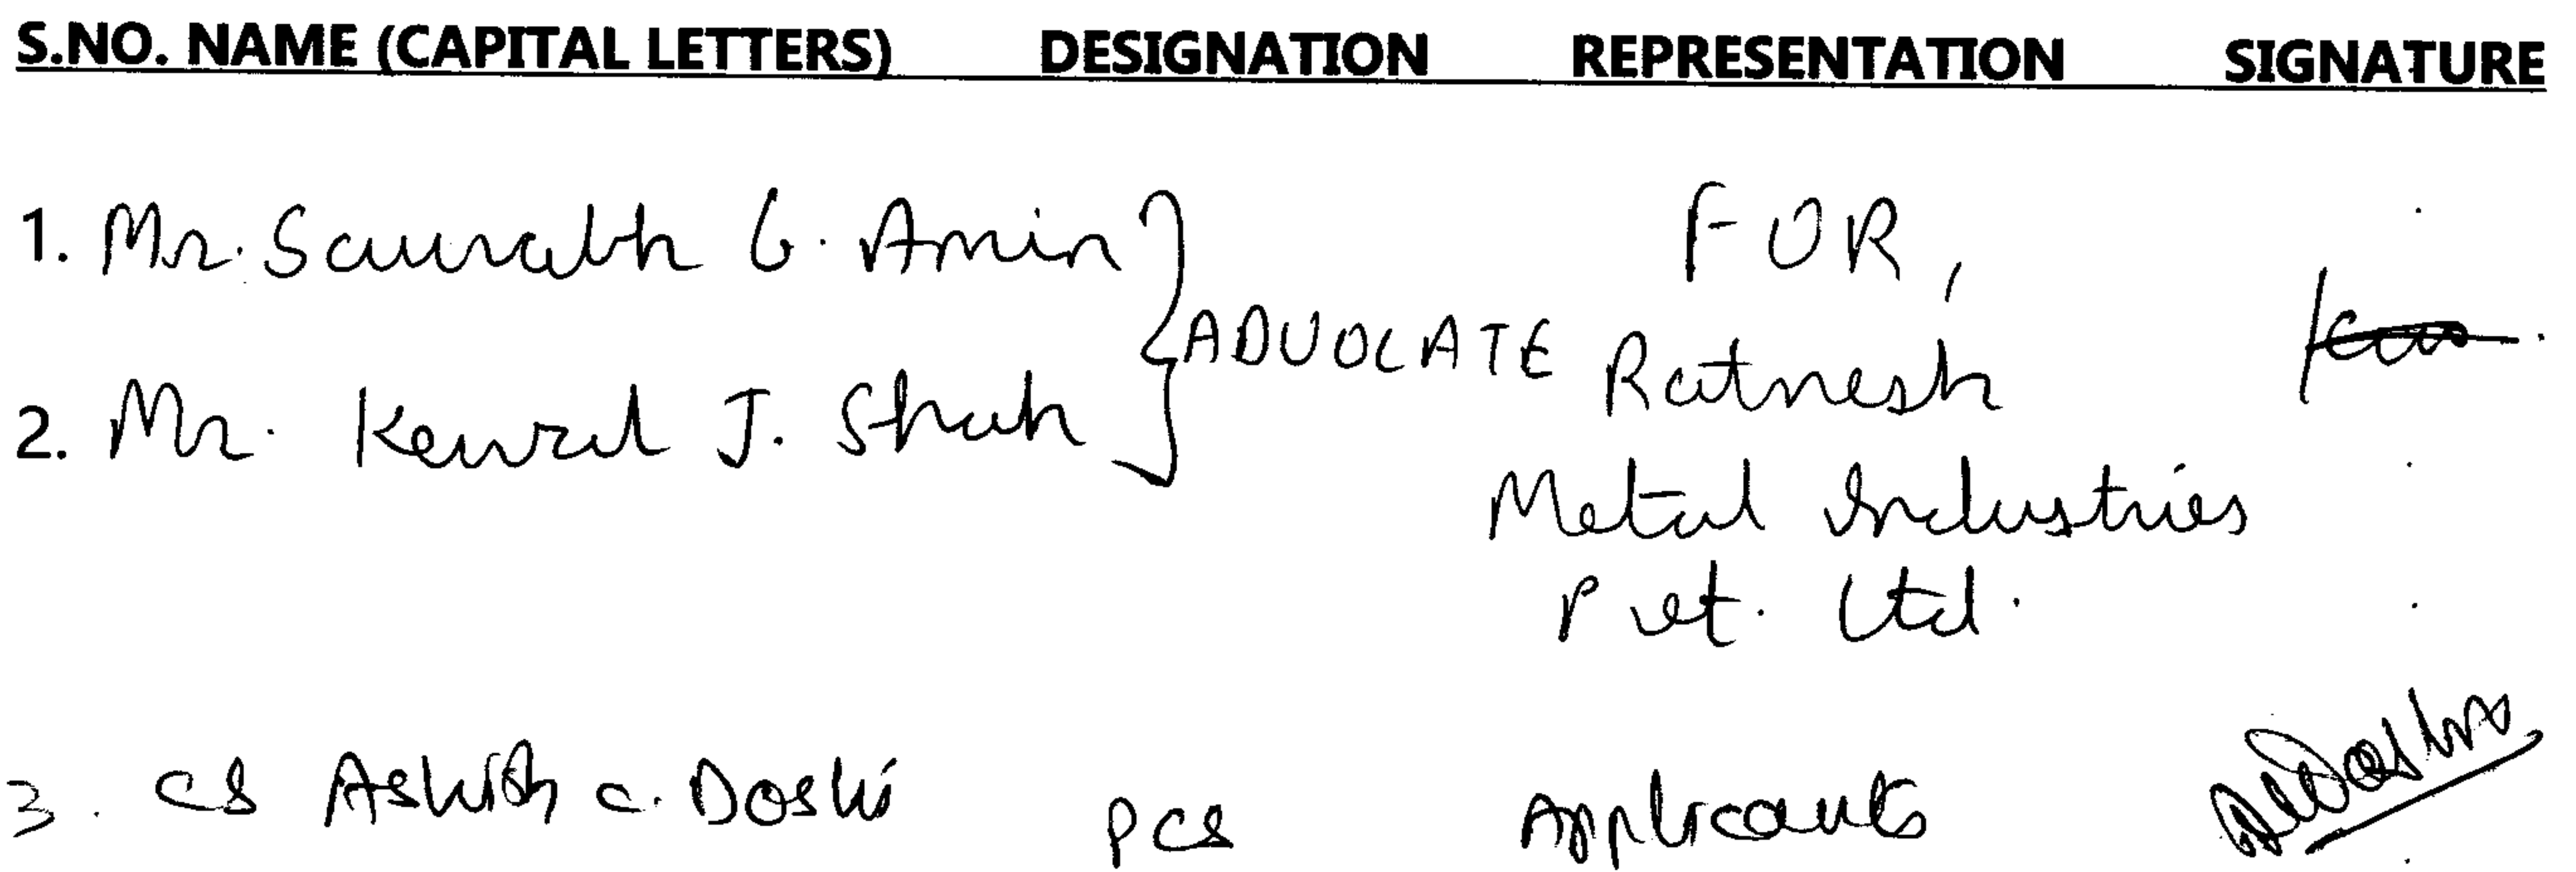 S.NO. NAME (CAPITAL LETTERS) DESIGNATION REPRESENTATION SIGNATURE
1. Mr. Saurabh G. Amin
2. Mr. Kewal J. Shah
ADVOCATE
FOR,
Ratnesh
Metal Industries
Pvt. Ltd.
3. CS Ashish C. Doshi PCS Applicants